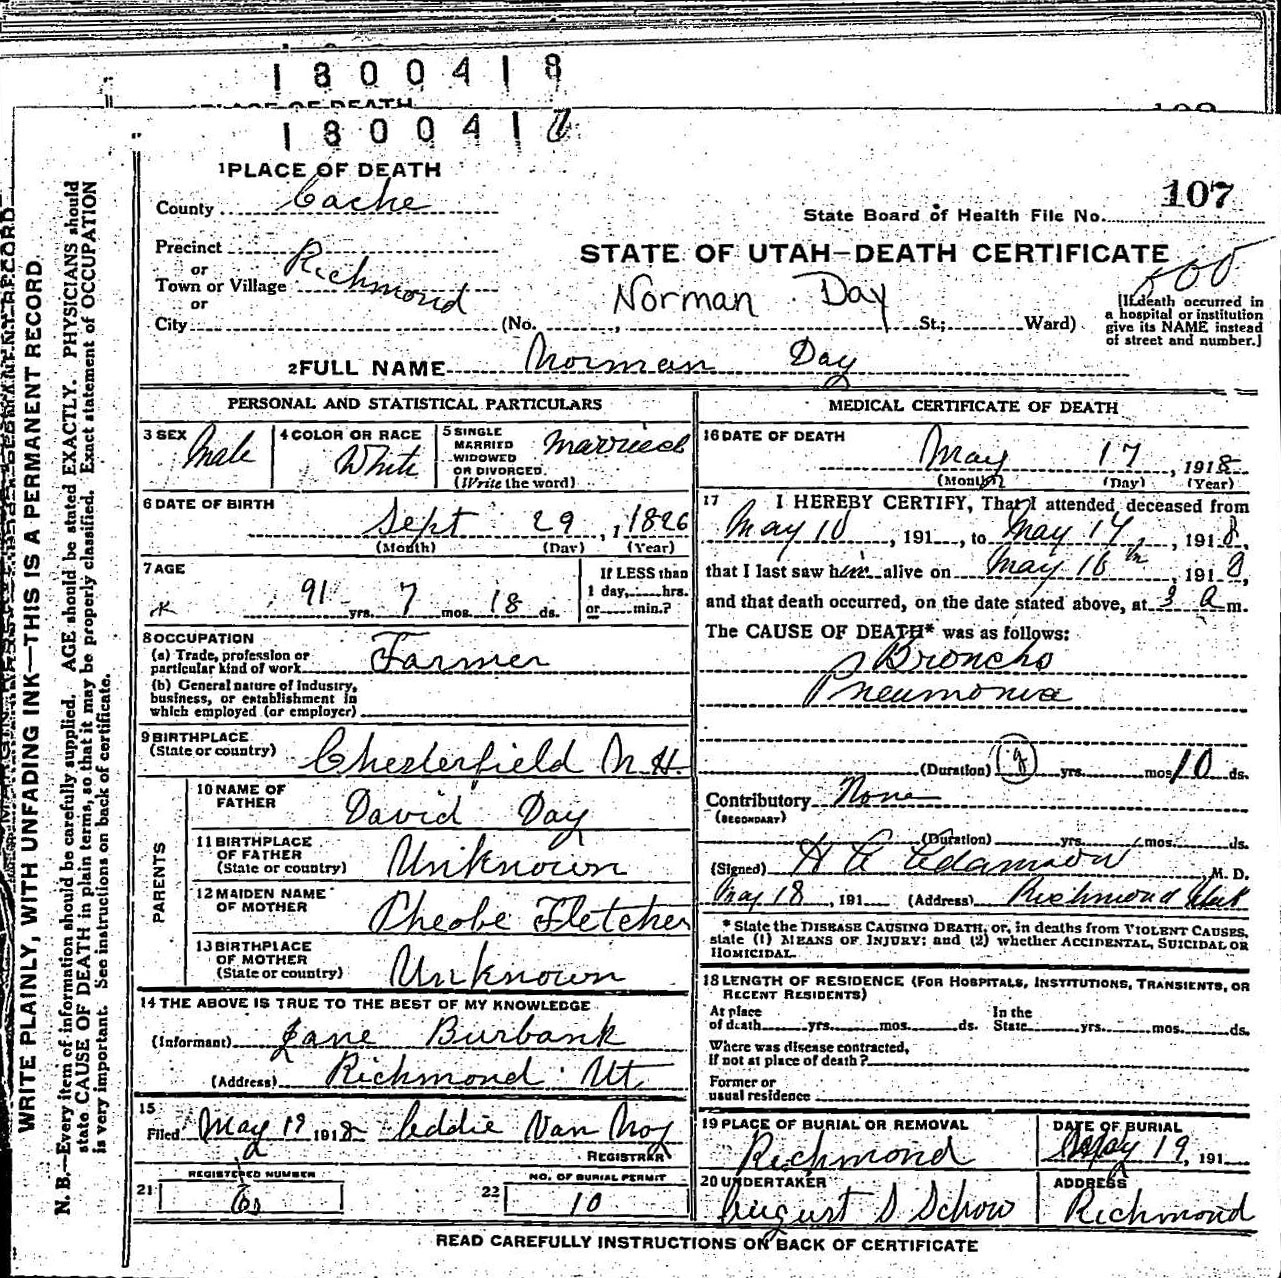 1 8 0 0 4 1 8
1 8 0 0 4 1
1 PLACE OF DEATH
County Cache
107
State Board of Health File No.
Precinct
or
Town or Village Richmond
or
STATE OF UTAH—DEATH CERTIFICATE
Norman Day
City (No. , St.; Ward)
[If death occurred in
a hospital or institution
give its NAME instead
of street and number.]
2 FULL NAME Norman Day
PERSONAL AND STATISTICAL PARTICULARS
3 SEX Male
4 COLOR OR RACE White
5 SINGLE
MARRIED
WIDOWED
OR DIVORCED.
(Write the word)
Married
6 DATE OF BIRTH
Sept 29, 1826
(Month) (Day) (Year)
7 AGE
91 yrs. 7 mos. 18 ds.
If LESS than
1 day, hrs.
or min.?
8 OCCUPATION
(a) Trade, profession or
particular kind of work Farmer
(b) General nature of industry,
business, or establishment in
which employed (or employer)
9 BIRTHPLACE
(State or country) Chesterfield N.H.
PARENTS
10 NAME OF
FATHER David Day
11 BIRTHPLACE
OF FATHER
(State or country) Unknown
12 MAIDEN NAME
OF MOTHER Pheobe Fletcher
13 BIRTHPLACE
OF MOTHER
(State or country) Unknown
14 THE ABOVE IS TRUE TO THE BEST OF MY KNOWLEDGE
(Informant) Jane Burbank
(Address) Richmond Ut
15
Filed May 19 1918 Eddie Van Noy
REGISTRAR
REGISTERED NUMBER
21
NO. OF BURIAL PERMIT
22 10
MEDICAL CERTIFICATE OF DEATH
16 DATE OF DEATH
May 17, 1918
(Month) (Day) (Year)
17 I HEREBY CERTIFY, That I attended deceased from
May 10, 191 , to May 17, 1918,
that I last saw him alive on May 16th, 1918,
and that death occurred, on the date stated above, at 3 a m.
The CAUSE OF DEATH* was as follows:
Broncho
Pneumonia
(Duration) yrs. mos 10 ds.
Contributory None
(SECONDARY)
(Duration) yrs. mos. ds.
(Signed) H C Adamson M. D.
May 18, 191 (Address) Richmond Utah
* State the DISEASE CAUSING DEATH, or, in deaths from VIOLENT CAUSES,
state (1) MEANS OF INJURY: and (2) whether ACCIDENTAL, SUICIDAL OR
HOMICIDAL.
18 LENGTH OF RESIDENCE (FOR HOSPITALS, INSTITUTIONS, TRANSIENTS, OR
RECENT RESIDENTS)
At place
of death yrs. mos. ds.
In the
State yrs. mos. ds.
Where was disease contracted,
If not at place of death?
Former or
usual residence
19 PLACE OF BURIAL OR REMOVAL
Richmond
DATE OF BURIAL
May 19, 191
20 UNDERTAKER
August S Schow
ADDRESS
Richmond
READ CAREFULLY INSTRUCTIONS ON BACK OF CERTIFICATE
WRITE PLAINLY, WITH UNFADING INK—THIS IS A PERMANENT RECORD.
N. B.—Every item of information should be carefully supplied. AGE should be stated EXACTLY. PHYSICIANS should
state CAUSE OF DEATH in plain terms, so that it may be properly classified. Exact statement of OCCUPATION
is very important. See instructions on back of certificate.